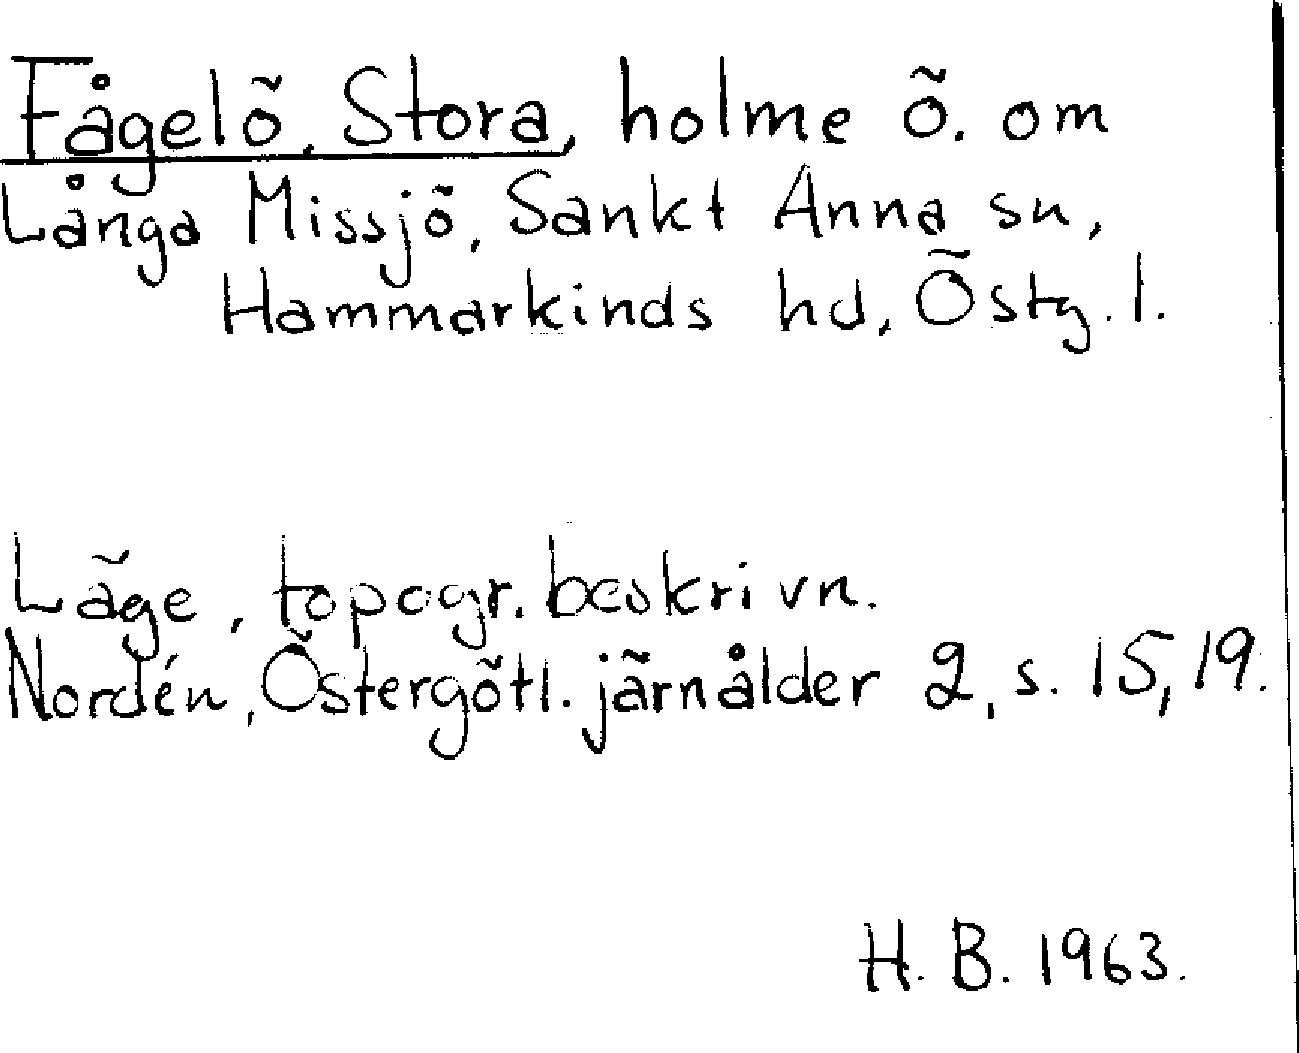 Fågelö, Stora, holme ö. om
Långa Missjö, Sankt Anna sn,
Hammarkinds hd, Östg. l.
Läge, topogr. beskrivn.
Nordén, Östergötl. järnålder 2, s. 15, 19.
H. B. 1963.